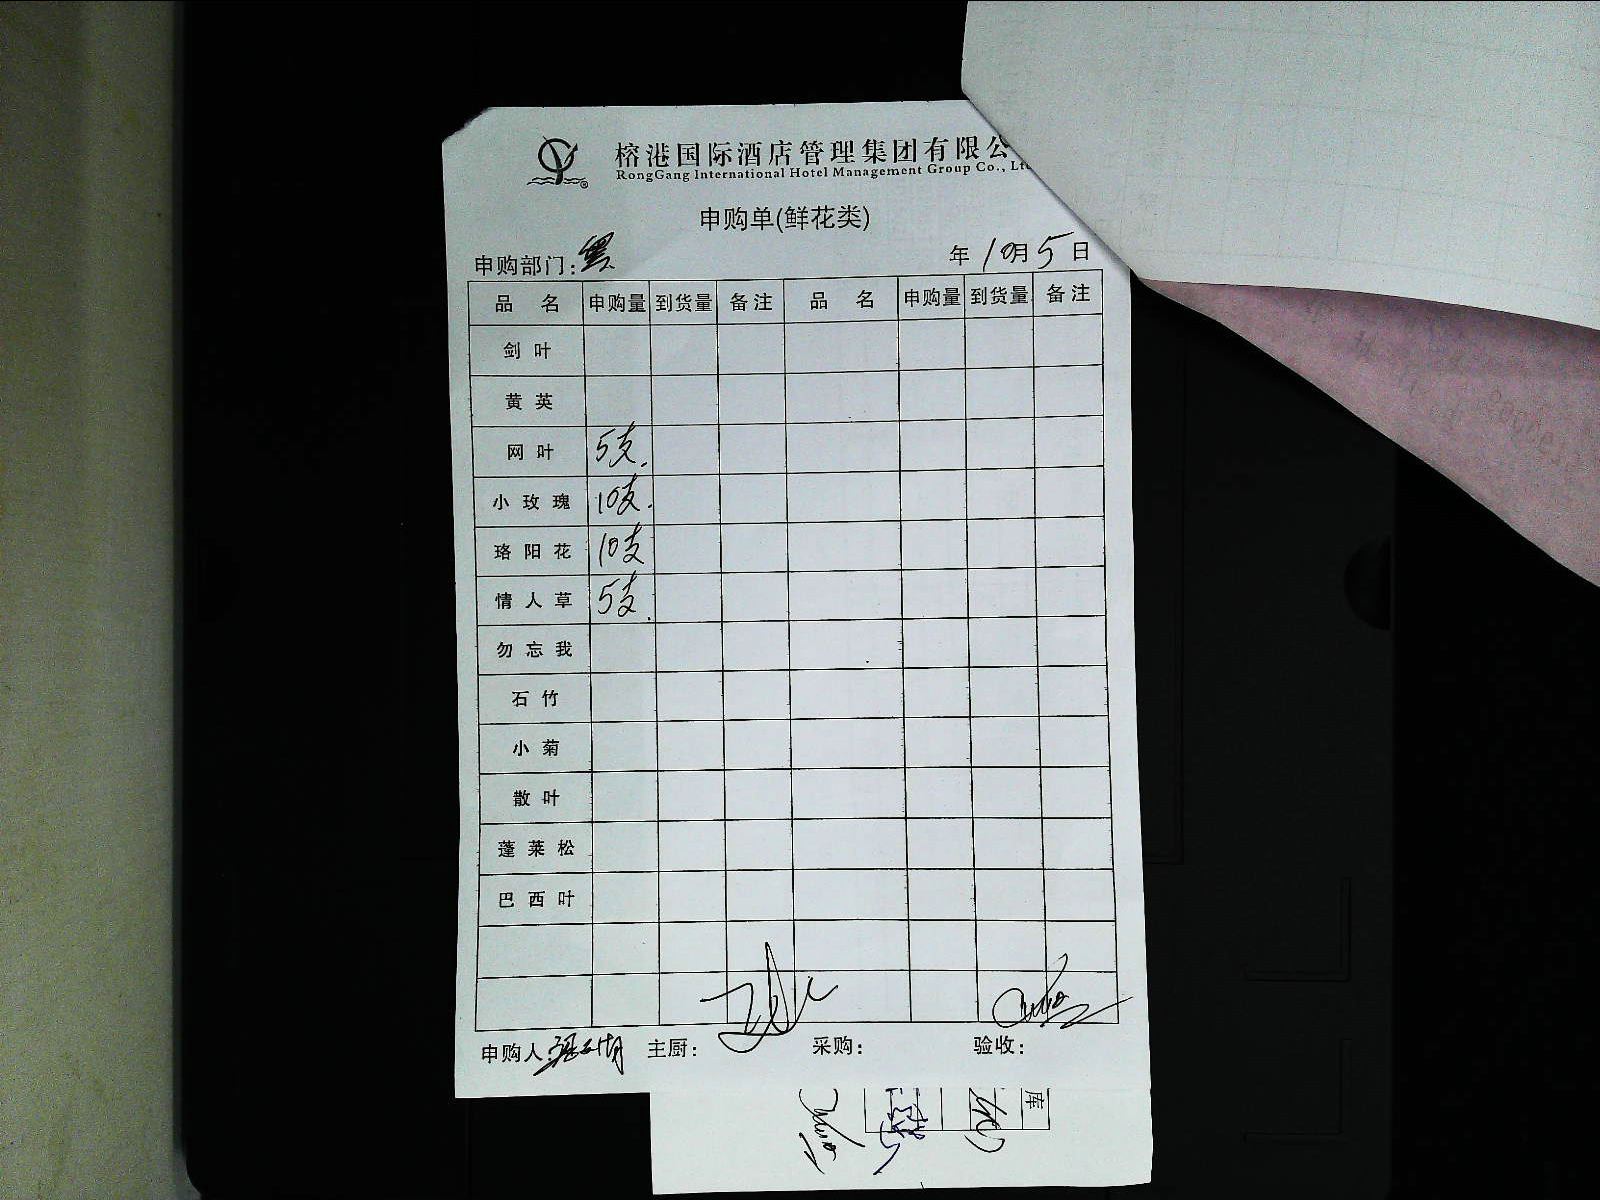 榕港国际酒店管理集团有限公
RongGang International Hotel Management Group Co., Lt
申购单(鲜花类)
申购部门: 年 10月5日
品名 申购量 到货量 备注 品名 申购量 到货量 备注
剑叶
黄英
网叶 5支.
小玫瑰 10支.
珞阳花 10支
情人草 5支.
勿忘我
石竹
小菊
散叶
蓬莱松
巴西叶
申购人: 主厨: 采购: 验收:
库